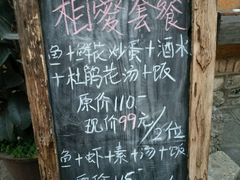 相爱套餐
鱼+鲜花炒蛋+酒水
+杜鹃花汤+饭
原价110-
现价99元/2位
鱼+虾+素+汤+饭